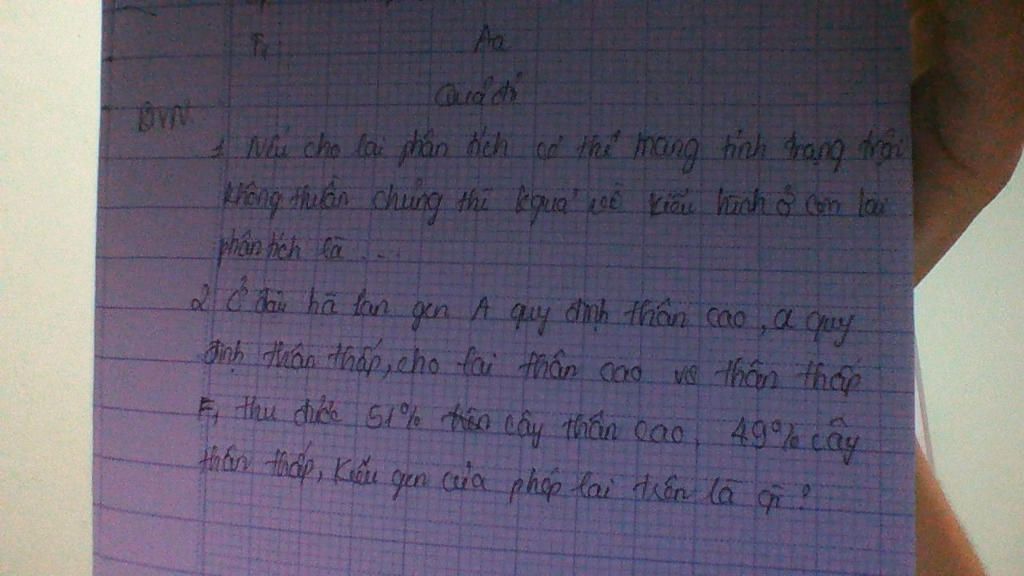 F₁: Aa
Quả đỏ
BVN
1 Nếu cho lai phân tích cơ thể mang tính trạng trội
không thuần chủng thì kquả về kiểu hình ở con lai
phân tích là ...
2 Ở đậu hà lan gen A quy định thân cao, a quy
định thân thấp, cho lai thân cao vs thân thấp
F₁ thu được 51% cây thân cao, 49% cây
thân thấp, kiểu gen của phép lai trên là gì?